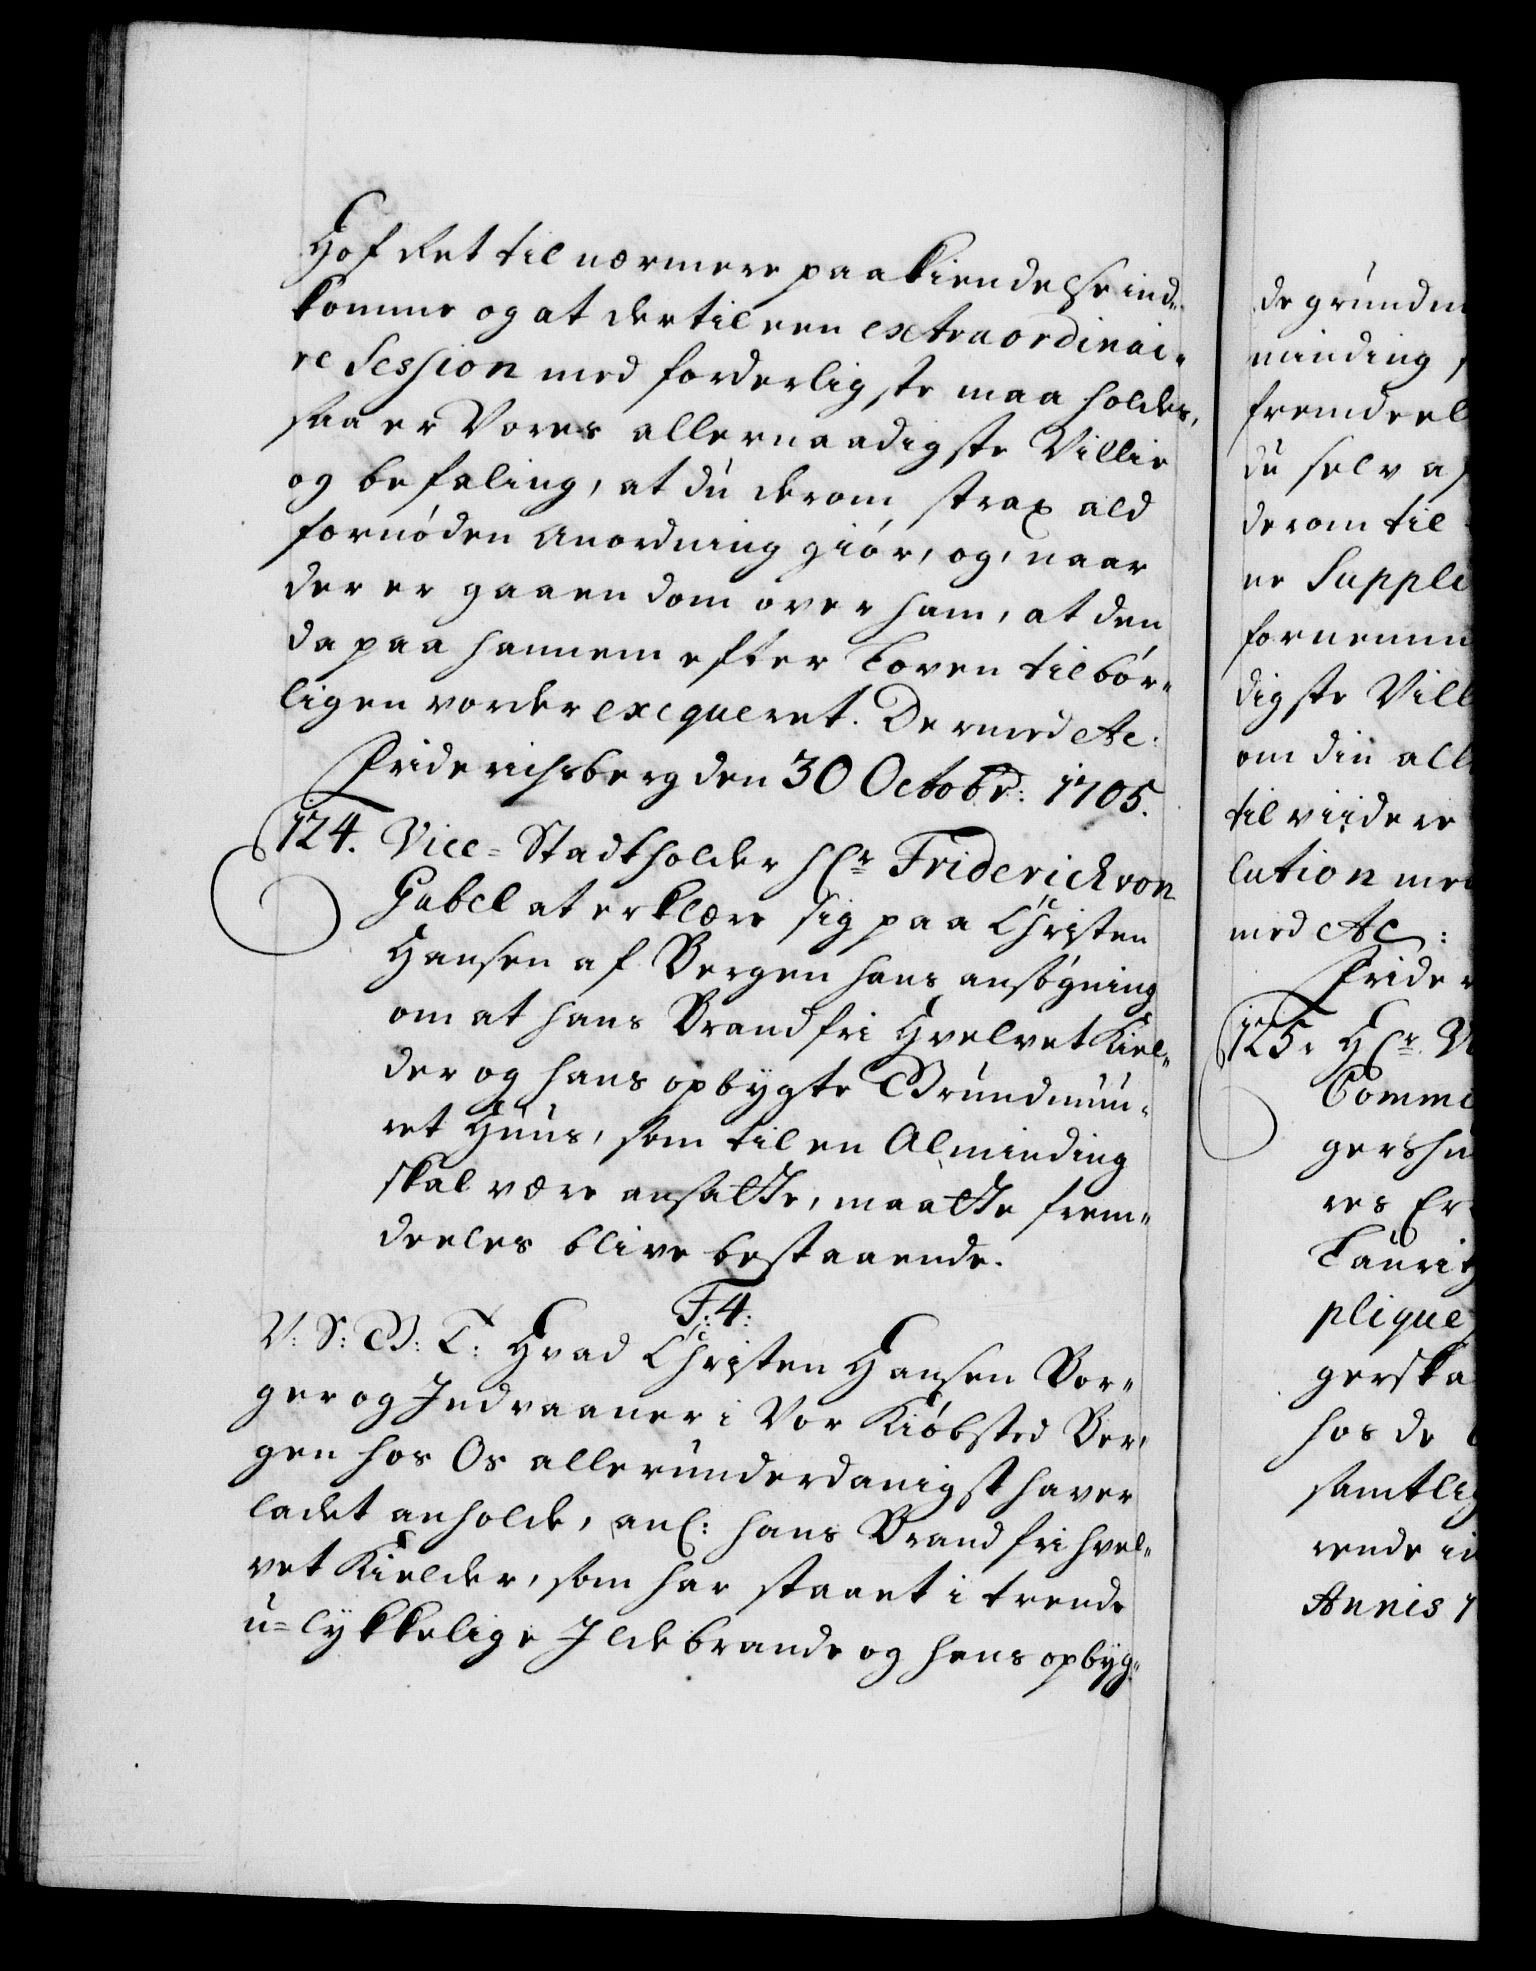 Hof Ret til nærmere paakiendelse ind„
komme og at dertil een extraordinai„
re Session med forderligste maa holdes,
saa er Vores allernaadigste Villie
og befaling, at du derom strax ald
fornöden anordning giör, og, naar
der er gaaen dom over ham, at den
da paa hannem efter Loven tilbör„
ligen vorder exequeret. Dermed Ac:
Friderichsberg den 30 Octobr: 1705.
124. Vice=Stadtholder Hr Friderich von
Gabel at erklære sig paa Christen
Hansen af Bergen hans ansögning
om at hans Brandfri Hvelvet Kiel„
der og hans opbygte Grundmuu„
ret Huus, som til en Alminding
skal være ansatte, maatte frem„
deeles blive bestaaende.
F: 4:
V: S: G: T: Hvad Christen Hansen Bor„
ger og Indvaaner i Vor Kiöbsted Ber„
gen hos Os allerunderdanigst haver
ladet anholde, anl: hans Brandfri hvel„
vet Kielder, som har staaet i trende
u=lykkelige Ildebrande og hans opbyg„
de grundm
minding
fremdeel
du selv a
derom til
ne Suppli
fornemm
digste Vill
om din all
til viidere
lution med
med Ac:
Frider
125. Hr
Commi
gershu
res
Laurit
plique
gerska
hos de
samtlig
rende
Annis